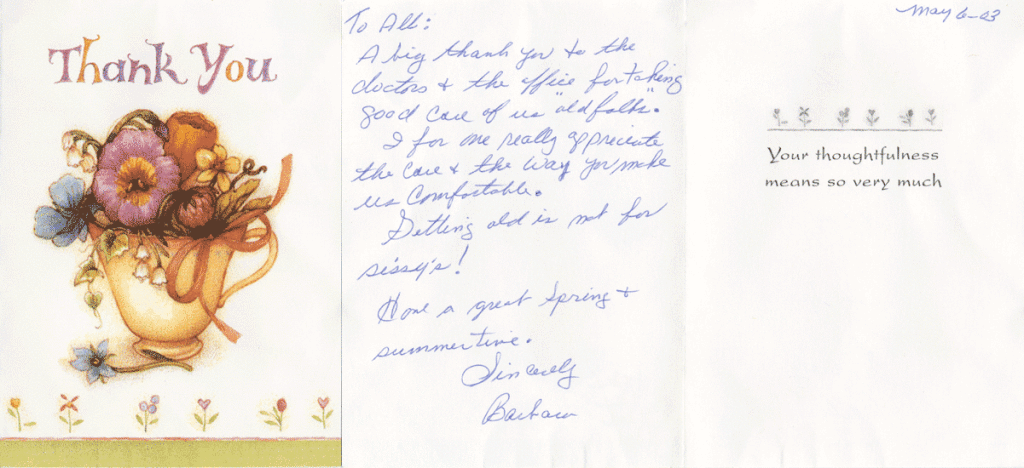 Thank You
To All:
A big thank you to the
doctors & the office for taking
good care of us "old folks".
I for one really appreciate
the care & the way you make
us comfortable.
Getting old is not for
sissy's!
Have a great Spring &
summertime.
Sincerely
Barbara
May 6-03
Your thoughtfulness
means so very much